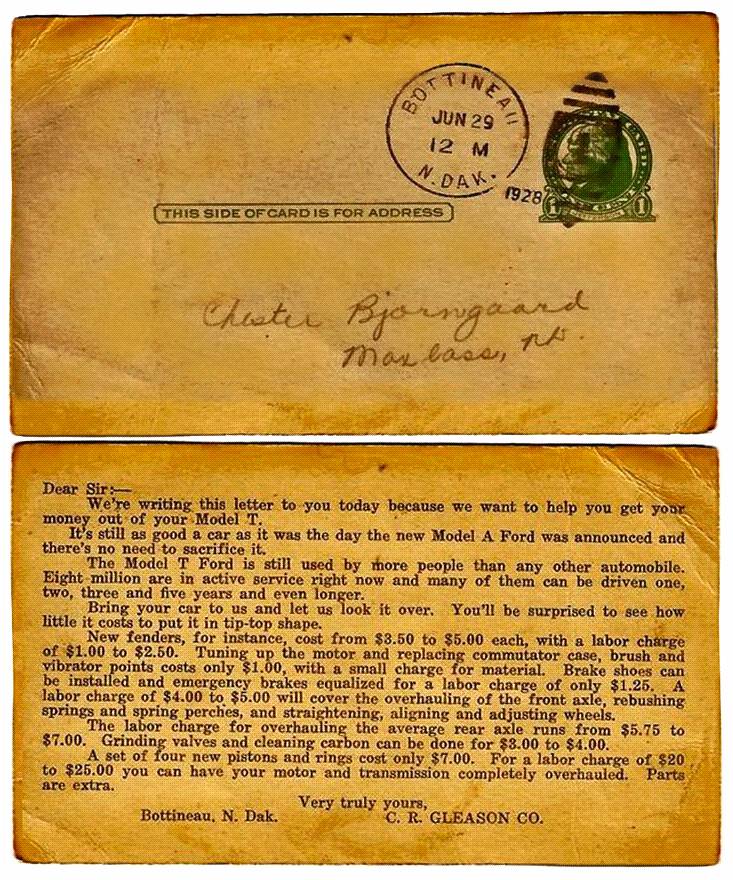 BOTTINEAU
JUN 29
12 M
N. DAK.
1928
1 1
THIS SIDE OF CARD IS FOR ADDRESS
Chester Bjorngaard
Maxbass, nd.
Dear Sir:—
We're writing this letter to you today because we want to help you get your
money out of your Model T.
It's still as good a car as it was the day the new Model A Ford was announced and
there's no need to sacrifice it.
The Model T Ford is still used by more people than any other automobile.
Eight million are in active service right now and many of them can be driven one,
two, three and five years and even longer.
Bring your car to us and let us look it over. You'll be surprised to see how
little it costs to put it in tip-top shape.
New fenders, for instance, cost from $3.50 to $5.00 each, with a labor charge
of $1.00 to $2.50. Tuning up the motor and replacing commutator case, brush and
vibrator points costs only $1.00, with a small charge for material. Brake shoes can
be installed and emergency brakes equalized for a labor charge of only $1.25. A
labor charge of $4.00 to $5.00 will cover the overhauling of the front axle, rebushing
springs and spring perches, and straightening, aligning and adjusting wheels.
The labor charge for overhauling the average rear axle runs from $5.75 to
$7.00. Grinding valves and cleaning carbon can be done for $3.00 to $4.00.
A set of four new pistons and rings cost only $7.00. For a labor charge of $20
to $25.00 you can have your motor and transmission completely overhauled. Parts
are extra.
Very truly yours,
Bottineau, N. Dak. C. R. GLEASON CO.